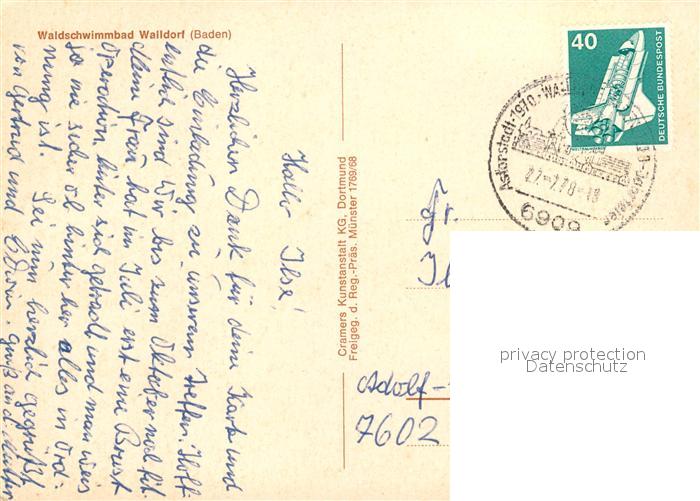 Waldschwimmbad Walldorf (Baden)
Hallo Ilse!
Herzlichen Dank für deine Karte und
die Einladung zu unserem Treffen. Hoff-
entlich sind wir bis zum Oktober noch fit.
Meine Frau hat im Juli erst eine Brust
operation hinter sich gebracht und man weis
ja nie sicher ob hinterher alles in Ord-
nung ist. Sei nun herzlich gegrüßt
von Gertrud und Edwin. Gruß an d. Mutter
Cramers Kunstanstalt KG, Dortmund
Freigeg. d. Reg.-Präs. Münster 1769/68
40
DEUTSCHE BUNDESPOST
Astorstadt 1970
6909
Fr.
Adolf-
7602
privacy protection
Datenschutz